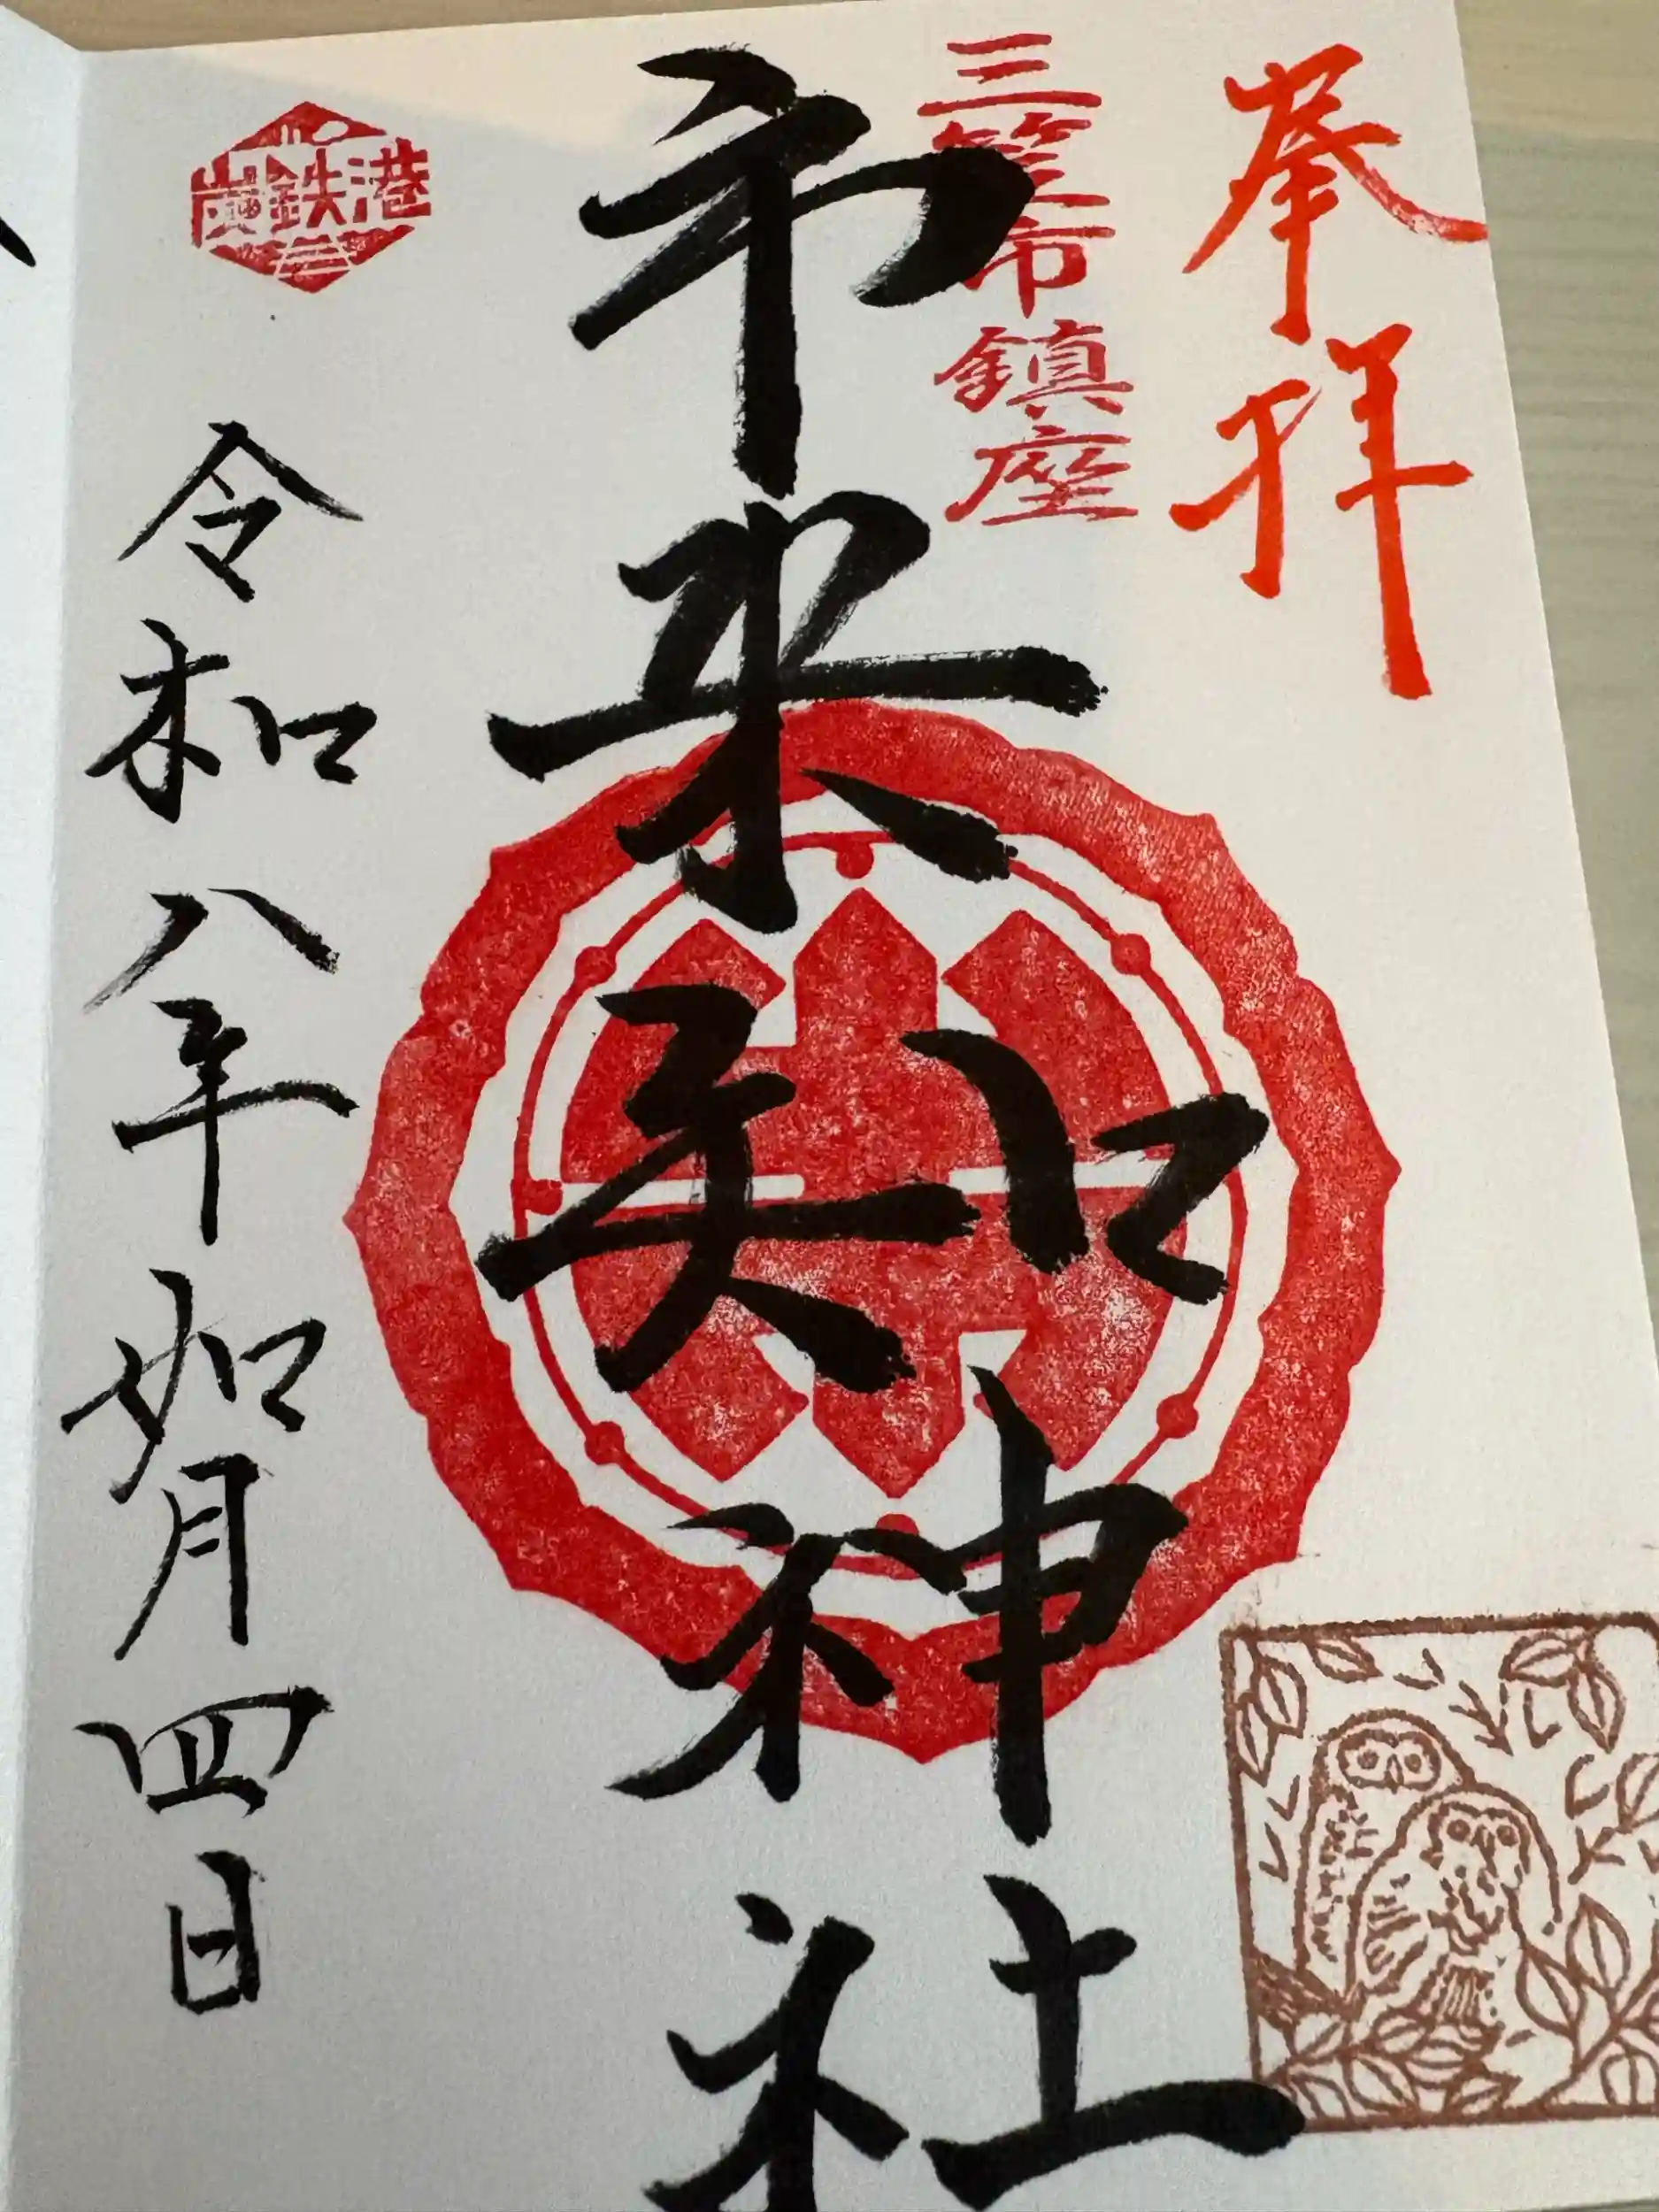 奉拝
三笠市鎮座
市来知神社
炭鉄港
令和八年如月四日